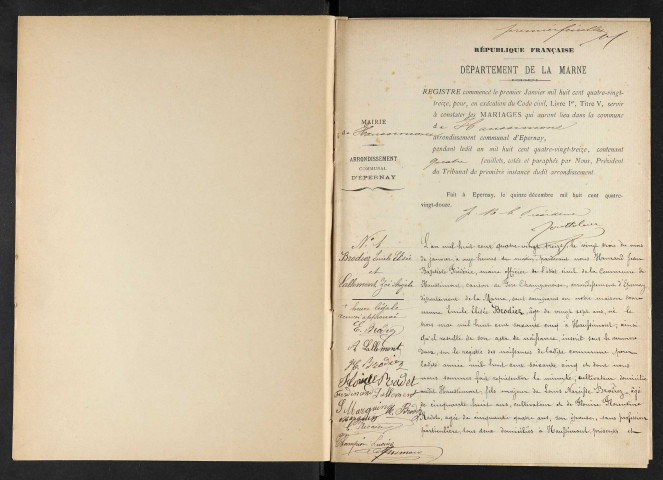 premier feuillet
RÉPUBLIQUE FRANÇAISE
DÉPARTEMENT DE LA MARNE
REGISTRE commencé le premier Janvier mil huit cent quatre-vingt-
treize, pour, en exécution du Code civil, Livre Ier, Titre V, servir
à constater les MARIAGES qui auront lieu dans la commune
de Haussimont
arrondissement communal d'Epernay,
pendant ledit an mil huit cent quatre-vingt-treize, contenant
quatre feuillets, cotés et paraphés par Nous, Président
du Tribunal de première instance dudit arrondissement
Fait à Epernay, le quinze décembre mil huit cent quatre-
vingt-douze.
MAIRIE
de Haussimont
ARRONDISSEMENT
COMMUNAL
D'ÉPERNAY
No 1
Brodiez Emile Elisée
et
Lallement
E. Brodiez
Lallement
H. Brodiez
Rodet
Lallement
L'an mil huit cent quatre-vingt treize, le vingt trois du mois
de janvier, à onze heures du matin, pardevant nous
Baptiste Frédéric, maire officier de l'état civil de la commune de
Haussimont, canton de Fère Champenoise, arrondissement d'Epernay
département de la Marne, sont comparus en notre maison com-
mune Emile Elisée Brodiez, âgé de vingt sept ans, né le
trois mai mil huit cent soixante cinq à Haussimont, ainsi
qu'il résulte de son acte de naissance, inscrit sous le numéro
deux, sur le registre des naissances de ladite commune, pour
ladite année mil huit cent soixante cinq et dont nous
nous sommes fait représenter la minute, cultivateur domicilié
audit Haussimont, fils majeur de Louis Narcisse Brodiez, âgé
de cinquante huit ans, cultivateur et de
Rodet, âgée de cinquante quatre ans, son épouse, sans profession
particulière, tous deux domiciliés à Haussimont, présents et